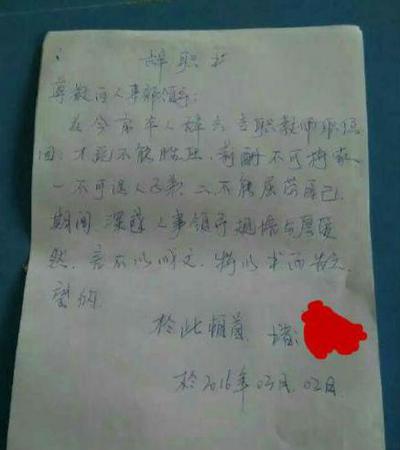 辞职书
尊敬的人事部领导:
在今家本人辞去 职教师职位
因:才 不能胜任,薪酬不可持家
一不可误人子弟 二不能屈苦自己.
期间深 人事领导 与厚爱
然,言不以 文.特以书面告之.
望 
于此顿首
于2016年03月.02日